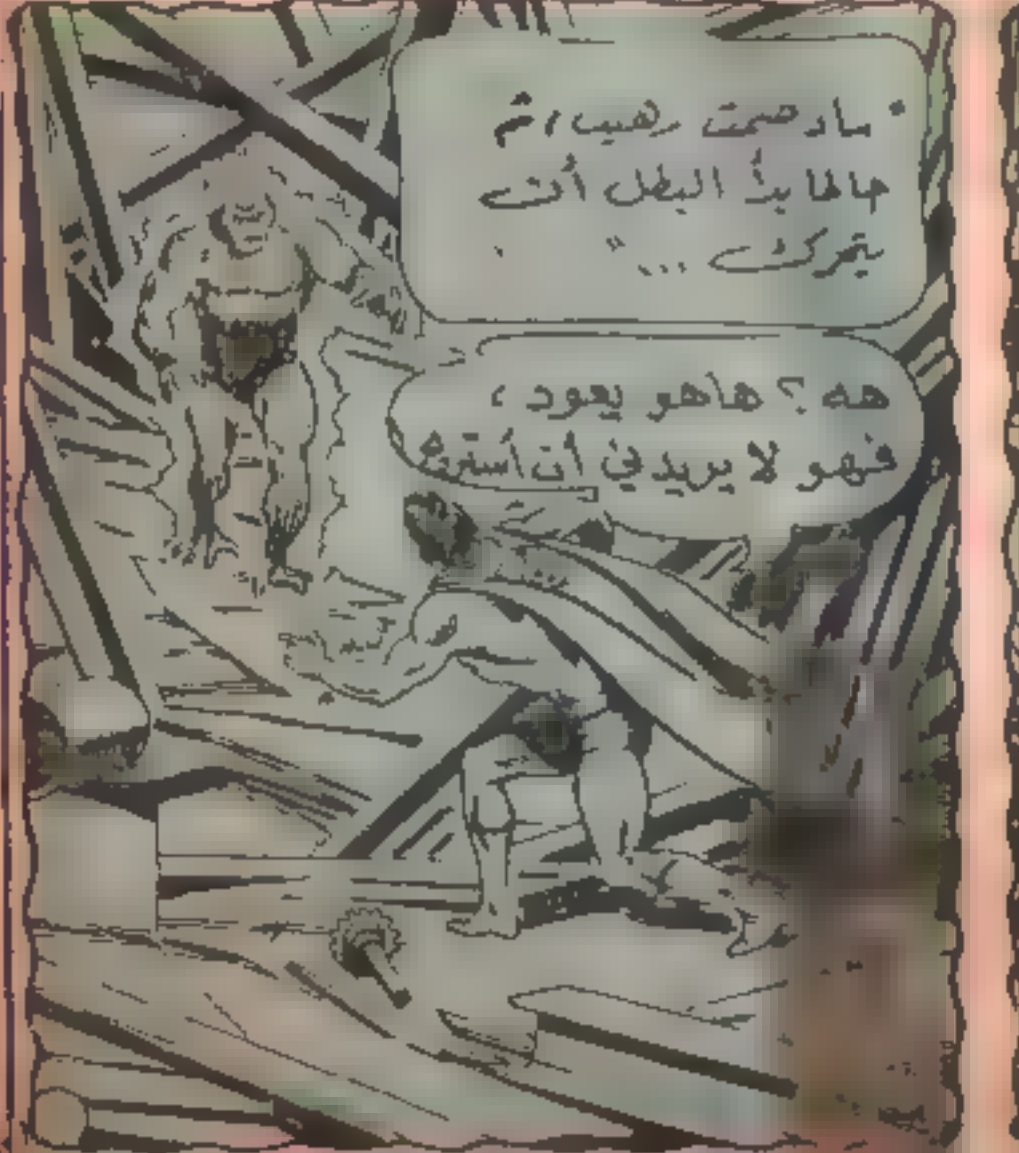 " ساد صمت رهيب، ثم
حالما بدأ البطل أن
يتحرك ... "
هه ؟ هاهو يعود ،
فهو لا يريدني أن أستريح